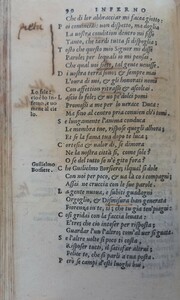 INFERNO
Che di lor abbracciar mi facea ghiotto.
P oi cominciai; non dispetto, ma doglia
La uostra condition dentro mi fisse
Tanto, che tardi tutta si dispoglia;
T osto che questo mio signor mi disse
Parole, per lequali io mi pensai,
Che qual uoi siete, tal gente uenisse.
D i uostra terra sono; & sempre mai
L'oura di uoi, & gli honorati nomi
Con affettion ritrassi & ascoltai.
L ascio lo fele, & uo per dolci pomi
Promessi a me per lo uerace Duca:
Ma fino al centro pria conuien ch'i tomi.
S e lungamente l'anima conduca
Le membra tue, rispose quegli allhora,
E se la fama tua dopo te luca;
C ortesia & ualor, di, se dimora
Ne la nostra città, si come suole;
O se del tutto se n'è gita fora?
Guglielmo
Borsiere.
C he Guglielmo Borsiere, ilqual si duole
Con noi per poco, & ua là co i compagni,
Assai ne cruccia con le sue parole.
L a gente nuoua, e i subiti guadagni
Orgoglio, & dismisura han generata
Fiorenza in te, si che tu già ten piagni:
C osi gridai con la faccia leuata:
E i tre, che ciò inteser per risposta,
Guardar l'un l'altro, com'al uer si guata.
S e l'altre uolte si poco ti costa,
Risposer tutti, il satisfar altrui;
Felice te, che si parli a tua posta.
P erò se campi d'esti luoghi bui,